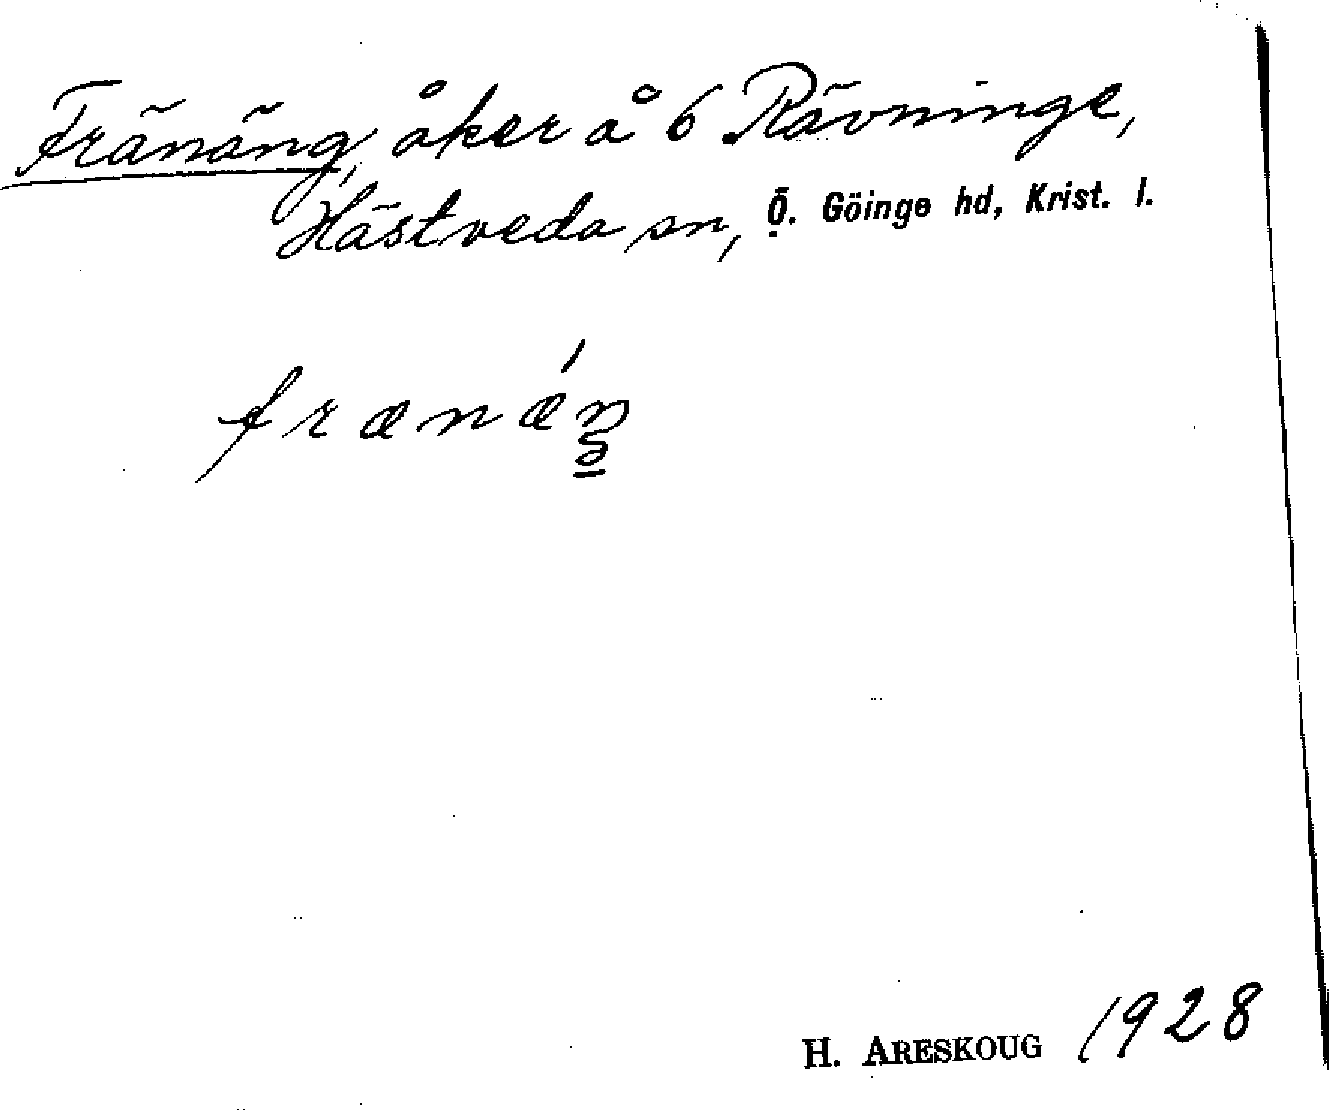 Fränäng, åker å 6 Rävninge,
Hästveda sn, Ö. Göinge hd, Krist. l.
frænǽŋ
H. ARESKOUG 1928